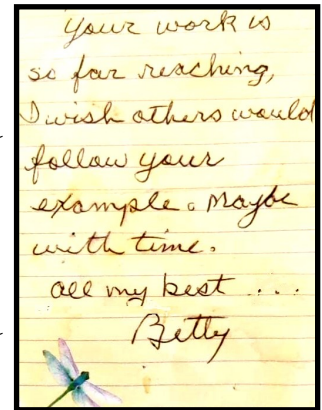 Your work is
so far reaching,
I wish others would
follow your
example. Maybe
with time.
all my best ....
Betty